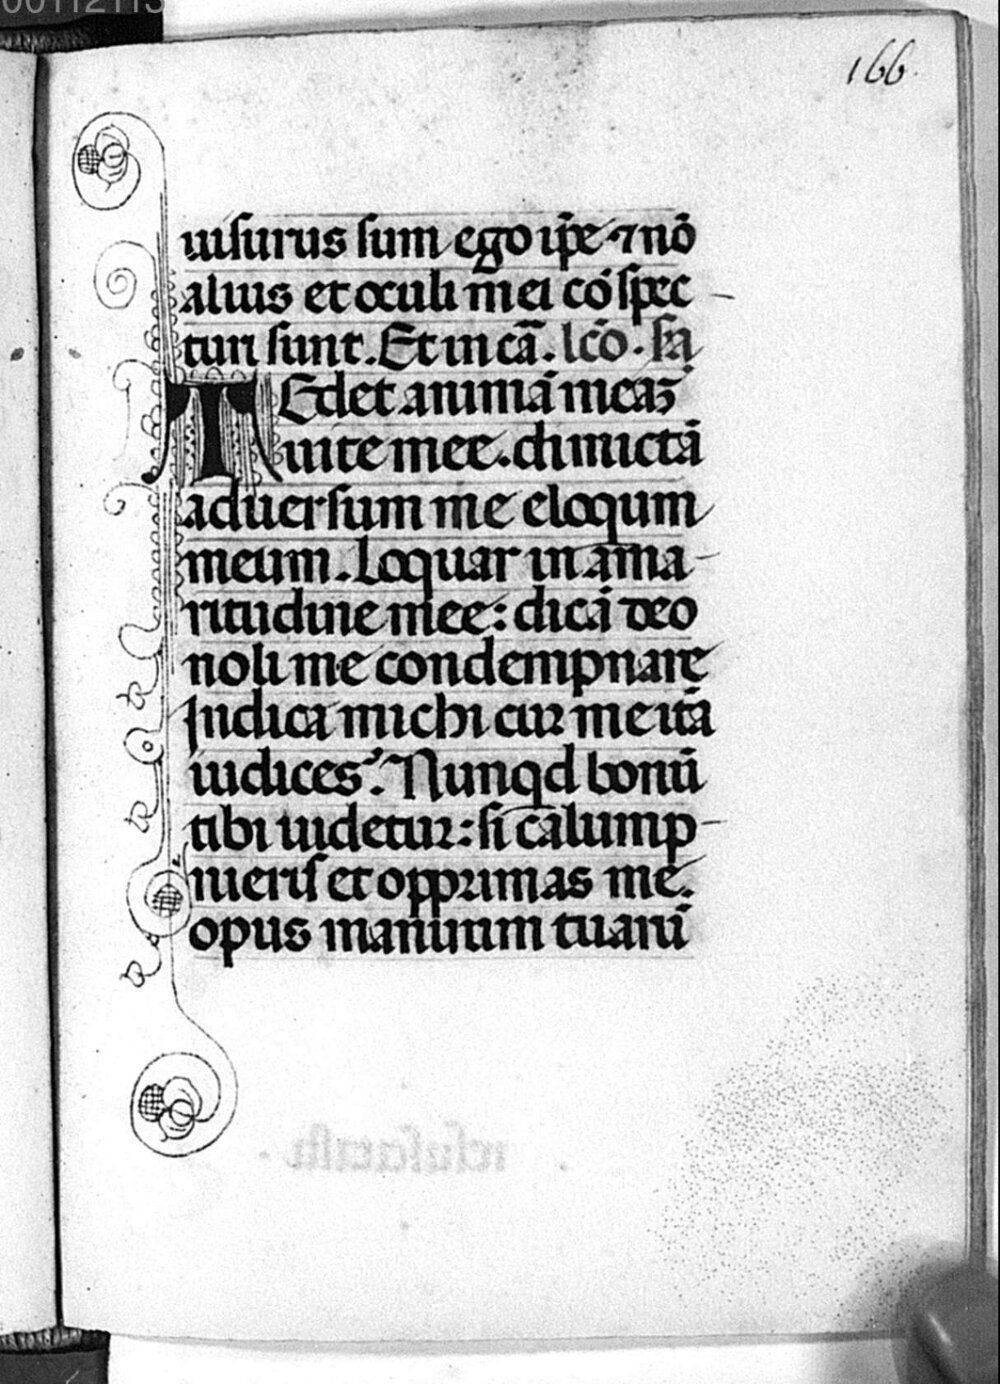 00112113
166
uisurus sum ego ip̃e ⁊ nō
alius et oculi mei cōspec
turi sunt. Et in cā. lcō. sā
TEdet animā meaꝫ
uite mee. dimictā
aduersum me eloqum
meum. Loquar in ama-
ritudine mee: dicā deo
noli me condempnare
Judica michi cur me itā
iudices? Nunqd bonū
tibi uidetur: si calump-
nieris et opprimas me.
opus manuum tuarū